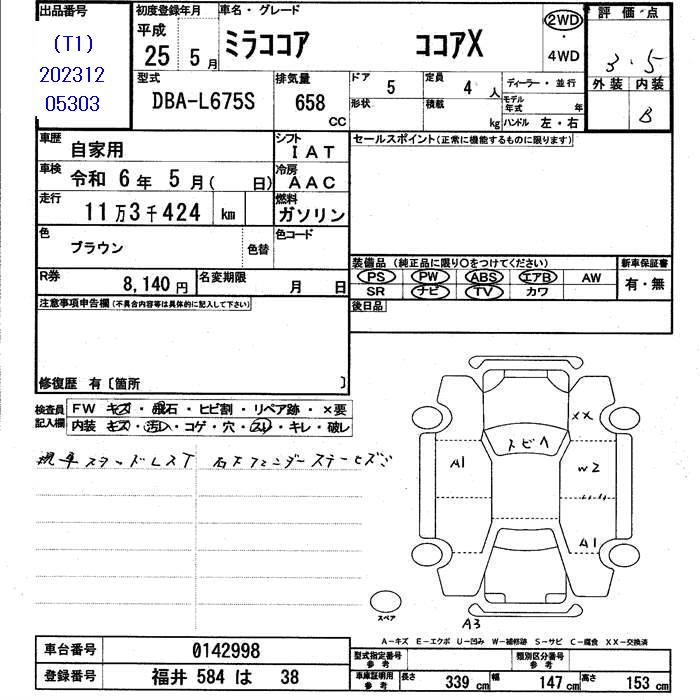 出品番号
(T1)
202312
05303
初度登録年月
平成
25 5月
車名・グレード
ミラココア ココアX
2WD
・
4WD
評価点
3.5
外装 内装
B
型式
DBA-L675S
排気量
658
CC
ドア 5
定員 4人
ディーラー・並行
形状
積載 kg
モデル年式 年
ハンドル 左・右
車歴
自家用
シフト
IAT
車検
令和 6年 5月( 日)
冷房
AAC
走行
11万3千424 km
燃料
ガソリン
色
ブラウン
色替
色コード
R券
8,140円
名変期限
月 日
セールスポイント(正常に機能するものに限ります)
装備品(純正品に限り○をつけてください)
PS PW ABS エアB AW
SR ナビ TV カワ
新車保証書
有・無
後日品
注意事項申告欄(不具合内容等は具体的に記入して下さい)
修復歴 有〔箇所 〕
検査員
記入欄
FW キズ・飛石・ヒビ割・リペア跡・×要
内装 キズ・汚レ・コゲ・穴・スレ・キレ・破レ
スタッドレスT
フェンダーステーヒズミ
XX
トビ
A1
W2
A1
A3
スペア
A-キズ E-エクボ U-凹み W-補修跡 S-サビ C-腐食 XX-交換済
車台番号
0142998
登録番号
福井 584 は 38
型式指定番号
参考
類別区分番号
参考
車庫証明用
参考
長さ 339 cm
幅 147 cm
高さ 153 cm